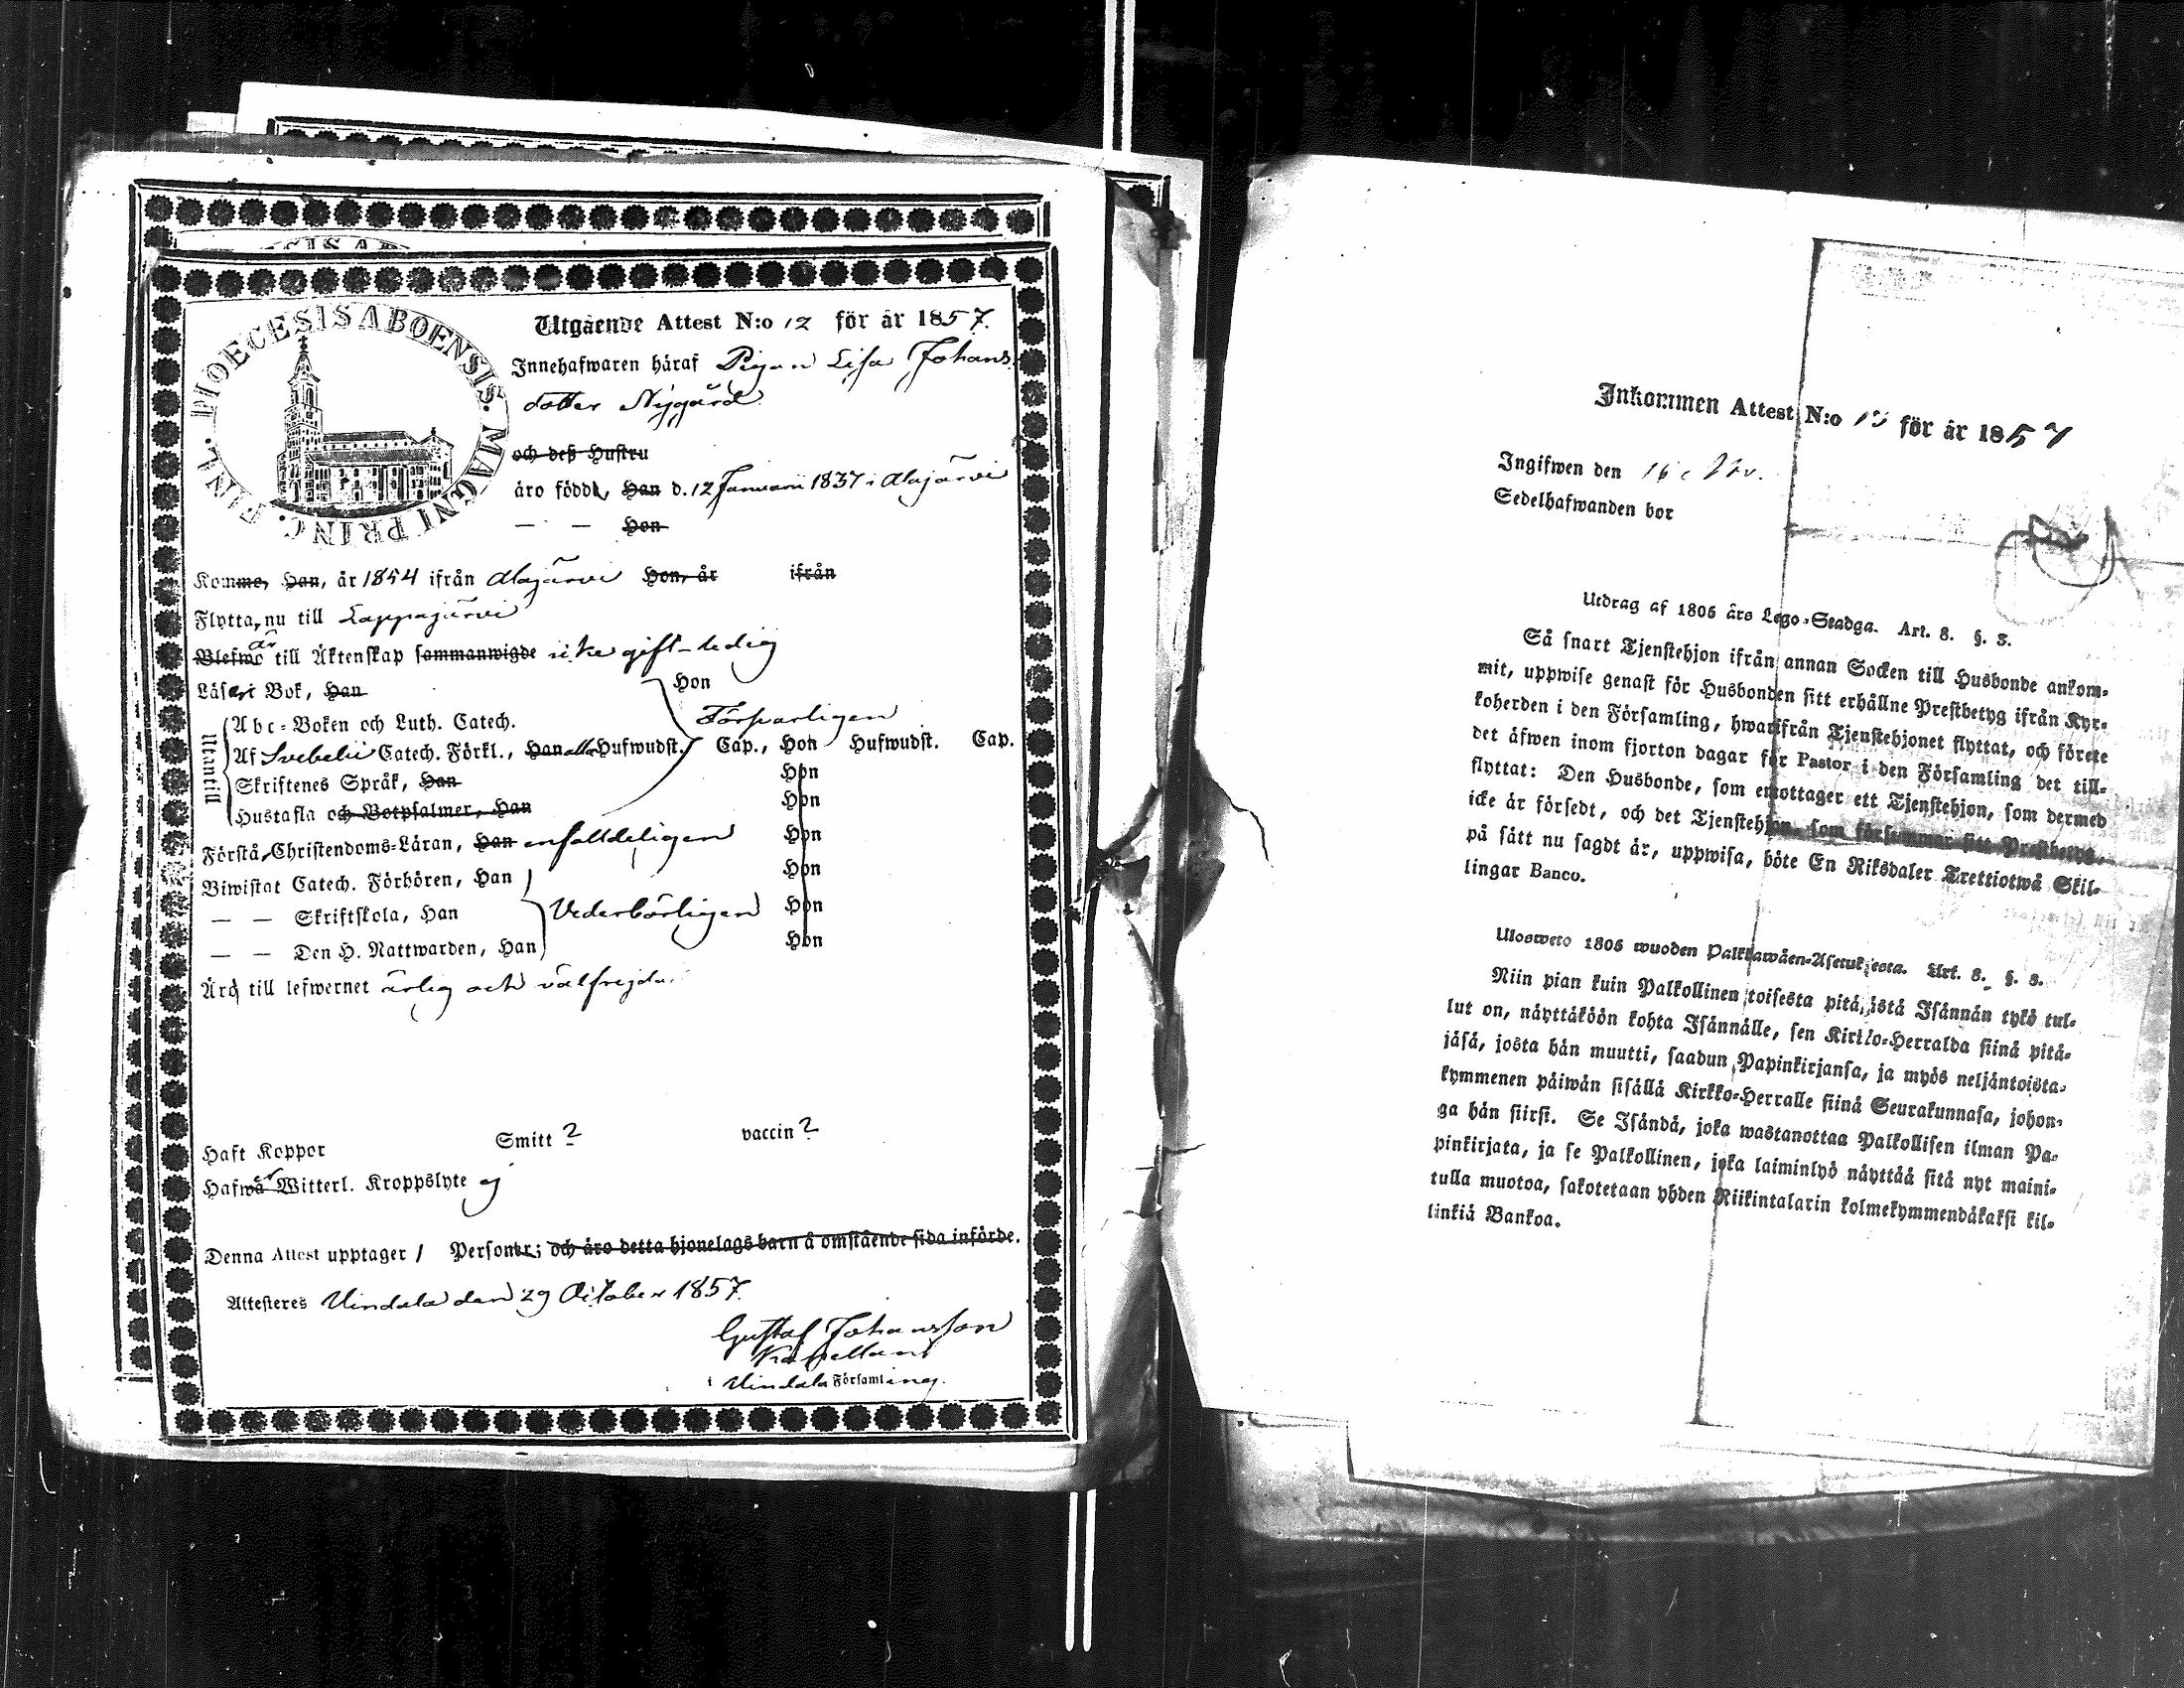 DIOECESIS ABOENSIS. MAGNI PRINC. FINL.
Utgående Attest N:o 12 för år 1857.
Innehafwaren häraf Pigan Lisa Johans
dotter Nygård
och deß Hustru
äro födde, Han d. 12 Januari 1837 i Alajärvi
— — Hon
Komme, Han, år 1854 ifrån Alajärvi Hon, år ifrån
Flytta, nu till Lappajärvi
är
Blefwo till Äktenskap sammanwigde icke gift - ledig
Läser i Bok, Han
Hon
Försvarligen
Utantill
Abc-Boken och Luth. Catech.
Af Svebelii Catech. Förkl., Han alla Hufwudst. Cap., Hon Hufwudst. Cap.
Skriftenes Språk, Han Hon
Hustafla och Botpsalmer, Han Hon
Förstå Christendoms-Läran, Han enfalldeligen Hon
Biwistat Catech. Förhören, Han Hon
— — Skriftskola, Han Vederbörligen Hon
— — Den H. Nattwarden, Han Hon
Äro till lefwernet ärlig och välfrejdad
Haft Koppor Smitt ? vaccin ?
Hafwa Witterl. Kroppslyte ej
Denna Attest upptager 1 Personer; och äro detta hjonelags barn å omstående sida införde.
Attesteres Vindala den 29 October 1857.
Gustaf Johansson
Kapellan
i Vindala Församling.
Inkommen Attest N:o för år 1857
Ingifwen den 16 Nov.
Sedelhafwanden bor
Utdrag af 1805 års Lego-Stadga. Art. 8. §. 3.
Så snart Tjenstehjon ifrån annan Socken till Husbonde ankom-
mit, uppwise genast för Husbonden sitt erhållne Prestbetyg ifrån Kyr-
koherden i den Församling, hwarifrån Tjenstehjonet flyttat, och förete
det äfwen inom fjorton dagar för Pastor i den Församling det till-
flyttat: Den Husbonde, som emottager ett Tjenstehjon, som dermed
icke är försedt, och det Tjenstehjon, som försummar sitt Prestbetyg,
på sätt nu sagdt är, uppwisa, böte En Riksdaler Trettiotwå Skil-
lingar Banco.
Ulosweto 1805 wuoden Palkkawäen-Asetuksesta. Art. 8. §. 3.
Niin pian kuin Palkollinen toisesta pitäjästä Isännän tykö tul-
lut on, näyttäköön kohta Isännälle, sen Kirkko-Herralda siinä pitä-
jäsä, josta hän muutti, saadun Papinkirjansa, ja myös neljäntoista-
kymmenen päiwän sisällä Kirkko-Herralle siinä Seurakunnasa, johon-
ga hän siirsi. Se Isändä, joka wastanottaa Palkollisen ilman Pa-
pinkirjata, ja se Palkollinen, joka laiminlyö näyttää sitä nyt maini-
tulla muotoa, sakotetaan yhden Riikintalarin kolmekymmendäkaksi kil-
linkiä Bankoa.